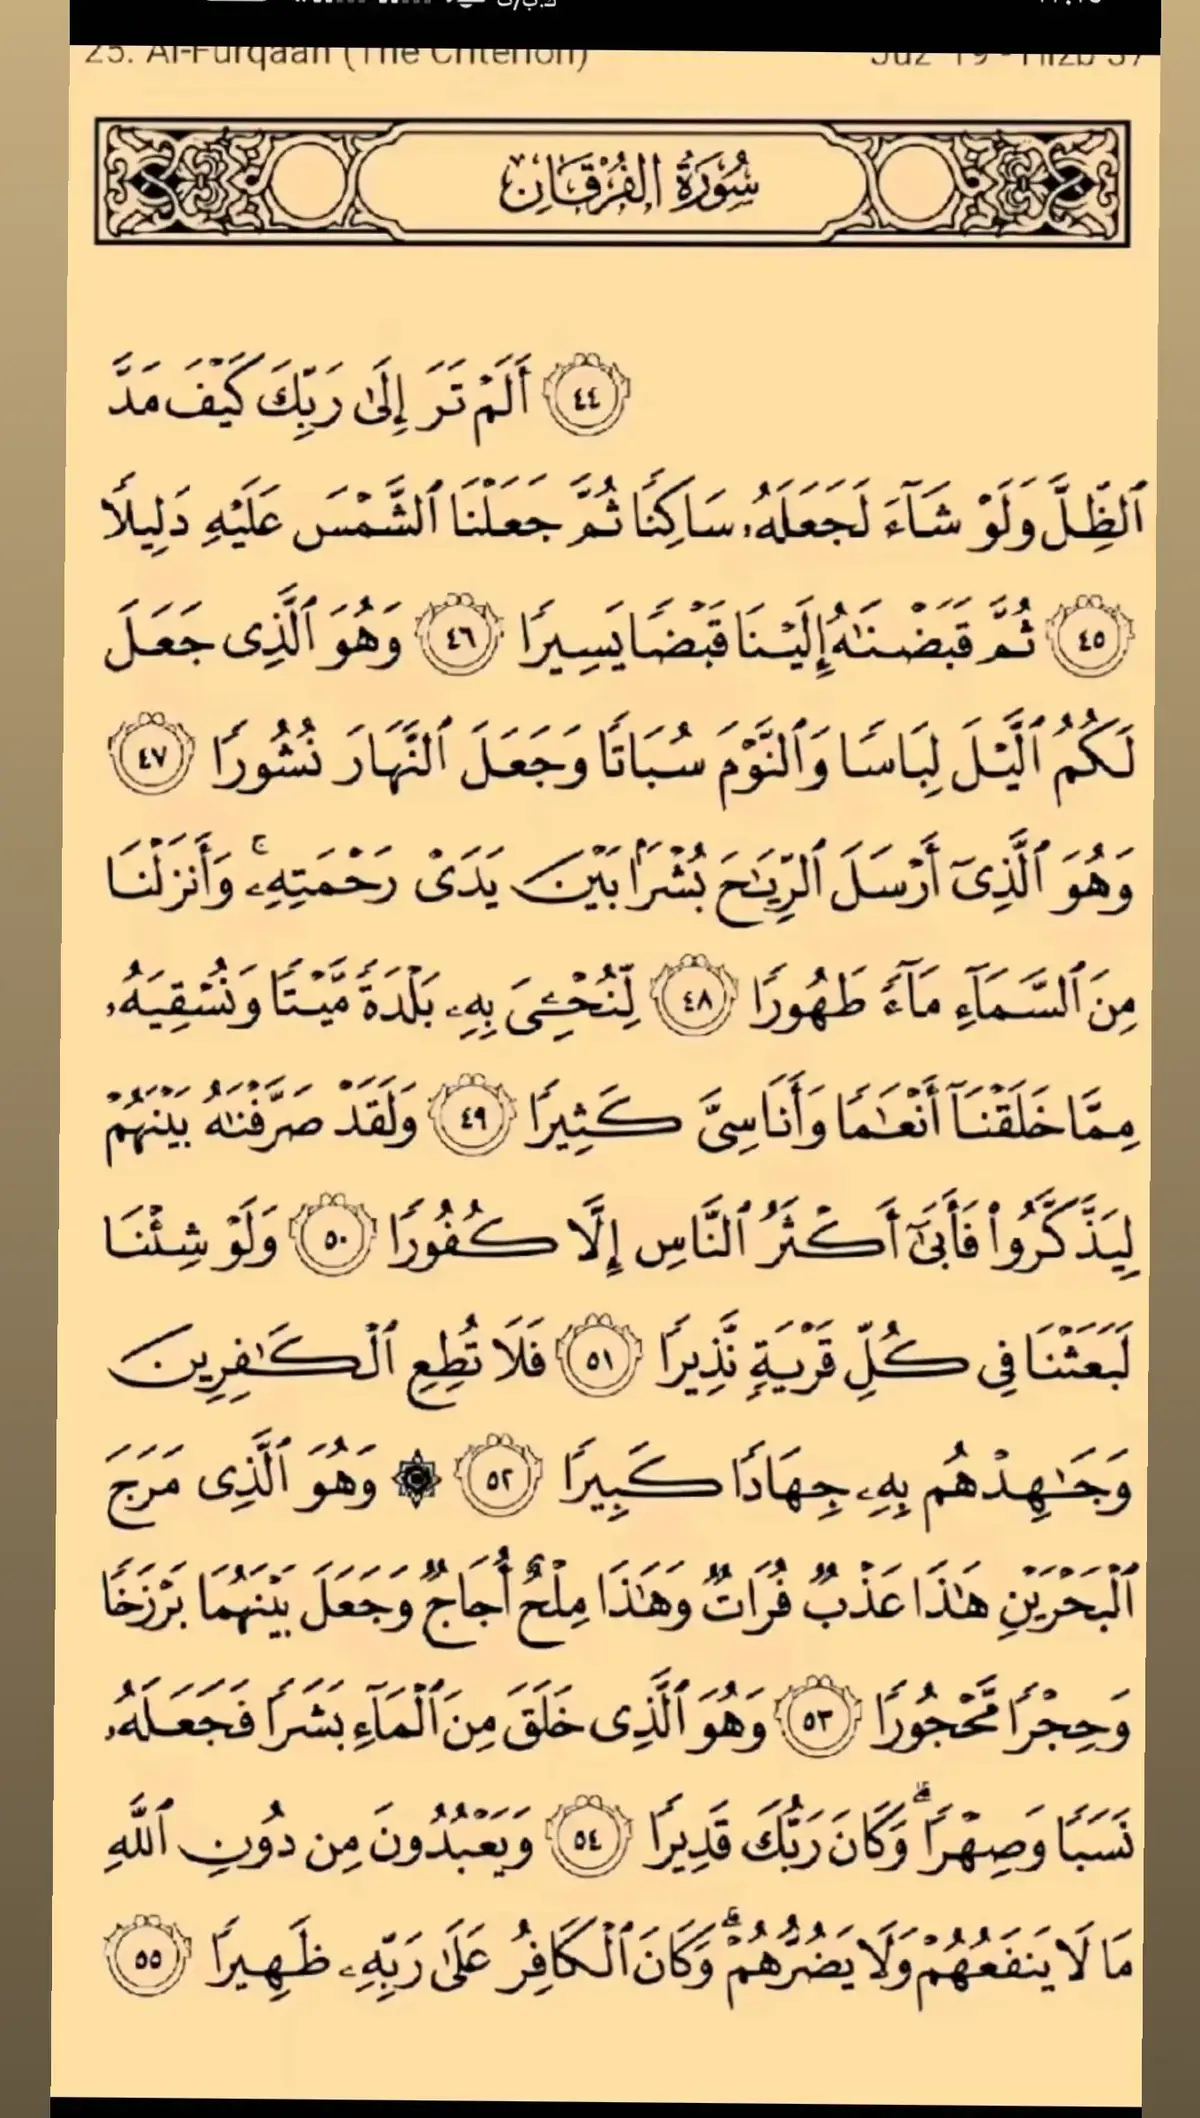 25. Al-Furqaan (The Criterion)
Juz' 19 - Hizb 37
سُورَةُ الفُرْقَانِ
٤٤ أَلَمْ تَرَ إِلَىٰ رَبِّكَ كَيْفَ مَدَّ
ٱلظِّلَّ وَلَوْ شَآءَ لَجَعَلَهُۥ سَاكِنًا ثُمَّ جَعَلْنَا ٱلشَّمْسَ عَلَيْهِ دَلِيلًا
٤٥ ثُمَّ قَبَضْنَٰهُ إِلَيْنَا قَبْضًا يَسِيرًا ٤٦ وَهُوَ ٱلَّذِى جَعَلَ
لَكُمُ ٱلَّيْلَ لِبَاسًا وَٱلنَّوْمَ سُبَاتًا وَجَعَلَ ٱلنَّهَارَ نُشُورًا ٤٧
وَهُوَ ٱلَّذِىٓ أَرْسَلَ ٱلرِّيَٰحَ بُشْرًۢا بَيْنَ يَدَىْ رَحْمَتِهِۦ ۚ وَأَنزَلْنَا
مِنَ ٱلسَّمَآءِ مَآءً طَهُورًا ٤٨ لِّنُحْـِۧىَ بِهِۦ بَلْدَةً مَّيْتًا وَنُسْقِيَهُۥ
مِمَّا خَلَقْنَآ أَنْعَٰمًا وَأَنَاسِىَّ كَثِيرًا ٤٩ وَلَقَدْ صَرَّفْنَٰهُ بَيْنَهُمْ
لِيَذَّكَّرُوا۟ فَأَبَىٰٓ أَكْثَرُ ٱلنَّاسِ إِلَّا كُفُورًا ٥٠ وَلَوْ شِئْنَا
لَبَعَثْنَا فِى كُلِّ قَرْيَةٍ نَّذِيرًا ٥١ فَلَا تُطِعِ ٱلْكَٰفِرِينَ
وَجَٰهِدْهُم بِهِۦ جِهَادًا كَبِيرًا ٥٢ ۞ وَهُوَ ٱلَّذِى مَرَجَ
ٱلْبَحْرَيْنِ هَٰذَا عَذْبٌ فُرَاتٌ وَهَٰذَا مِلْحٌ أُجَاجٌ وَجَعَلَ بَيْنَهُمَا بَرْزَخًا
وَحِجْرًا مَّحْجُورًا ٥٣ وَهُوَ ٱلَّذِى خَلَقَ مِنَ ٱلْمَآءِ بَشَرًا فَجَعَلَهُۥ
نَسَبًا وَصِهْرًا ۗ وَكَانَ رَبُّكَ قَدِيرًا ٥٤ وَيَعْبُدُونَ مِن دُونِ ٱللَّهِ
مَا لَا يَنفَعُهُمْ وَلَا يَضُرُّهُمْ ۗ وَكَانَ ٱلْكَافِرُ عَلَىٰ رَبِّهِۦ ظَهِيرًا ٥٥